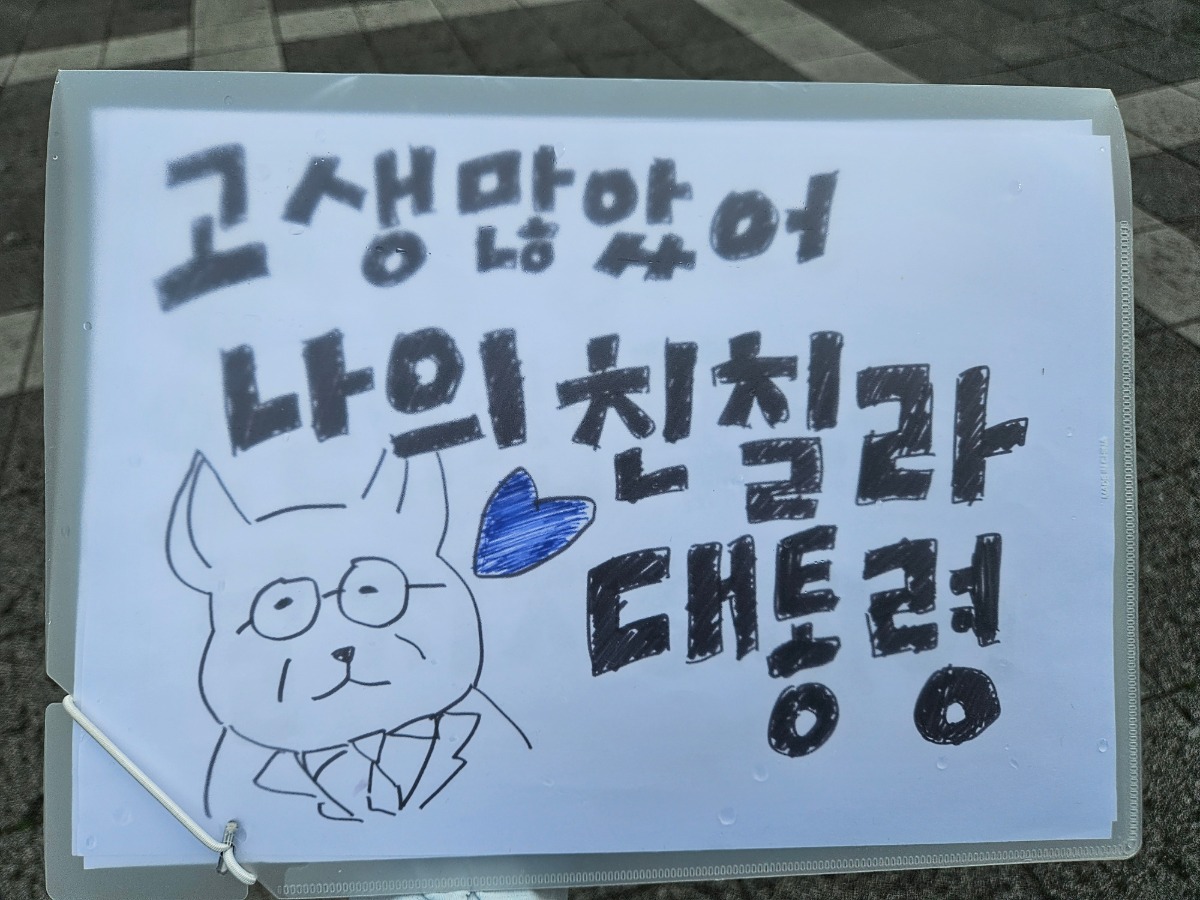 고생많았어
나의 친칠라
대통령